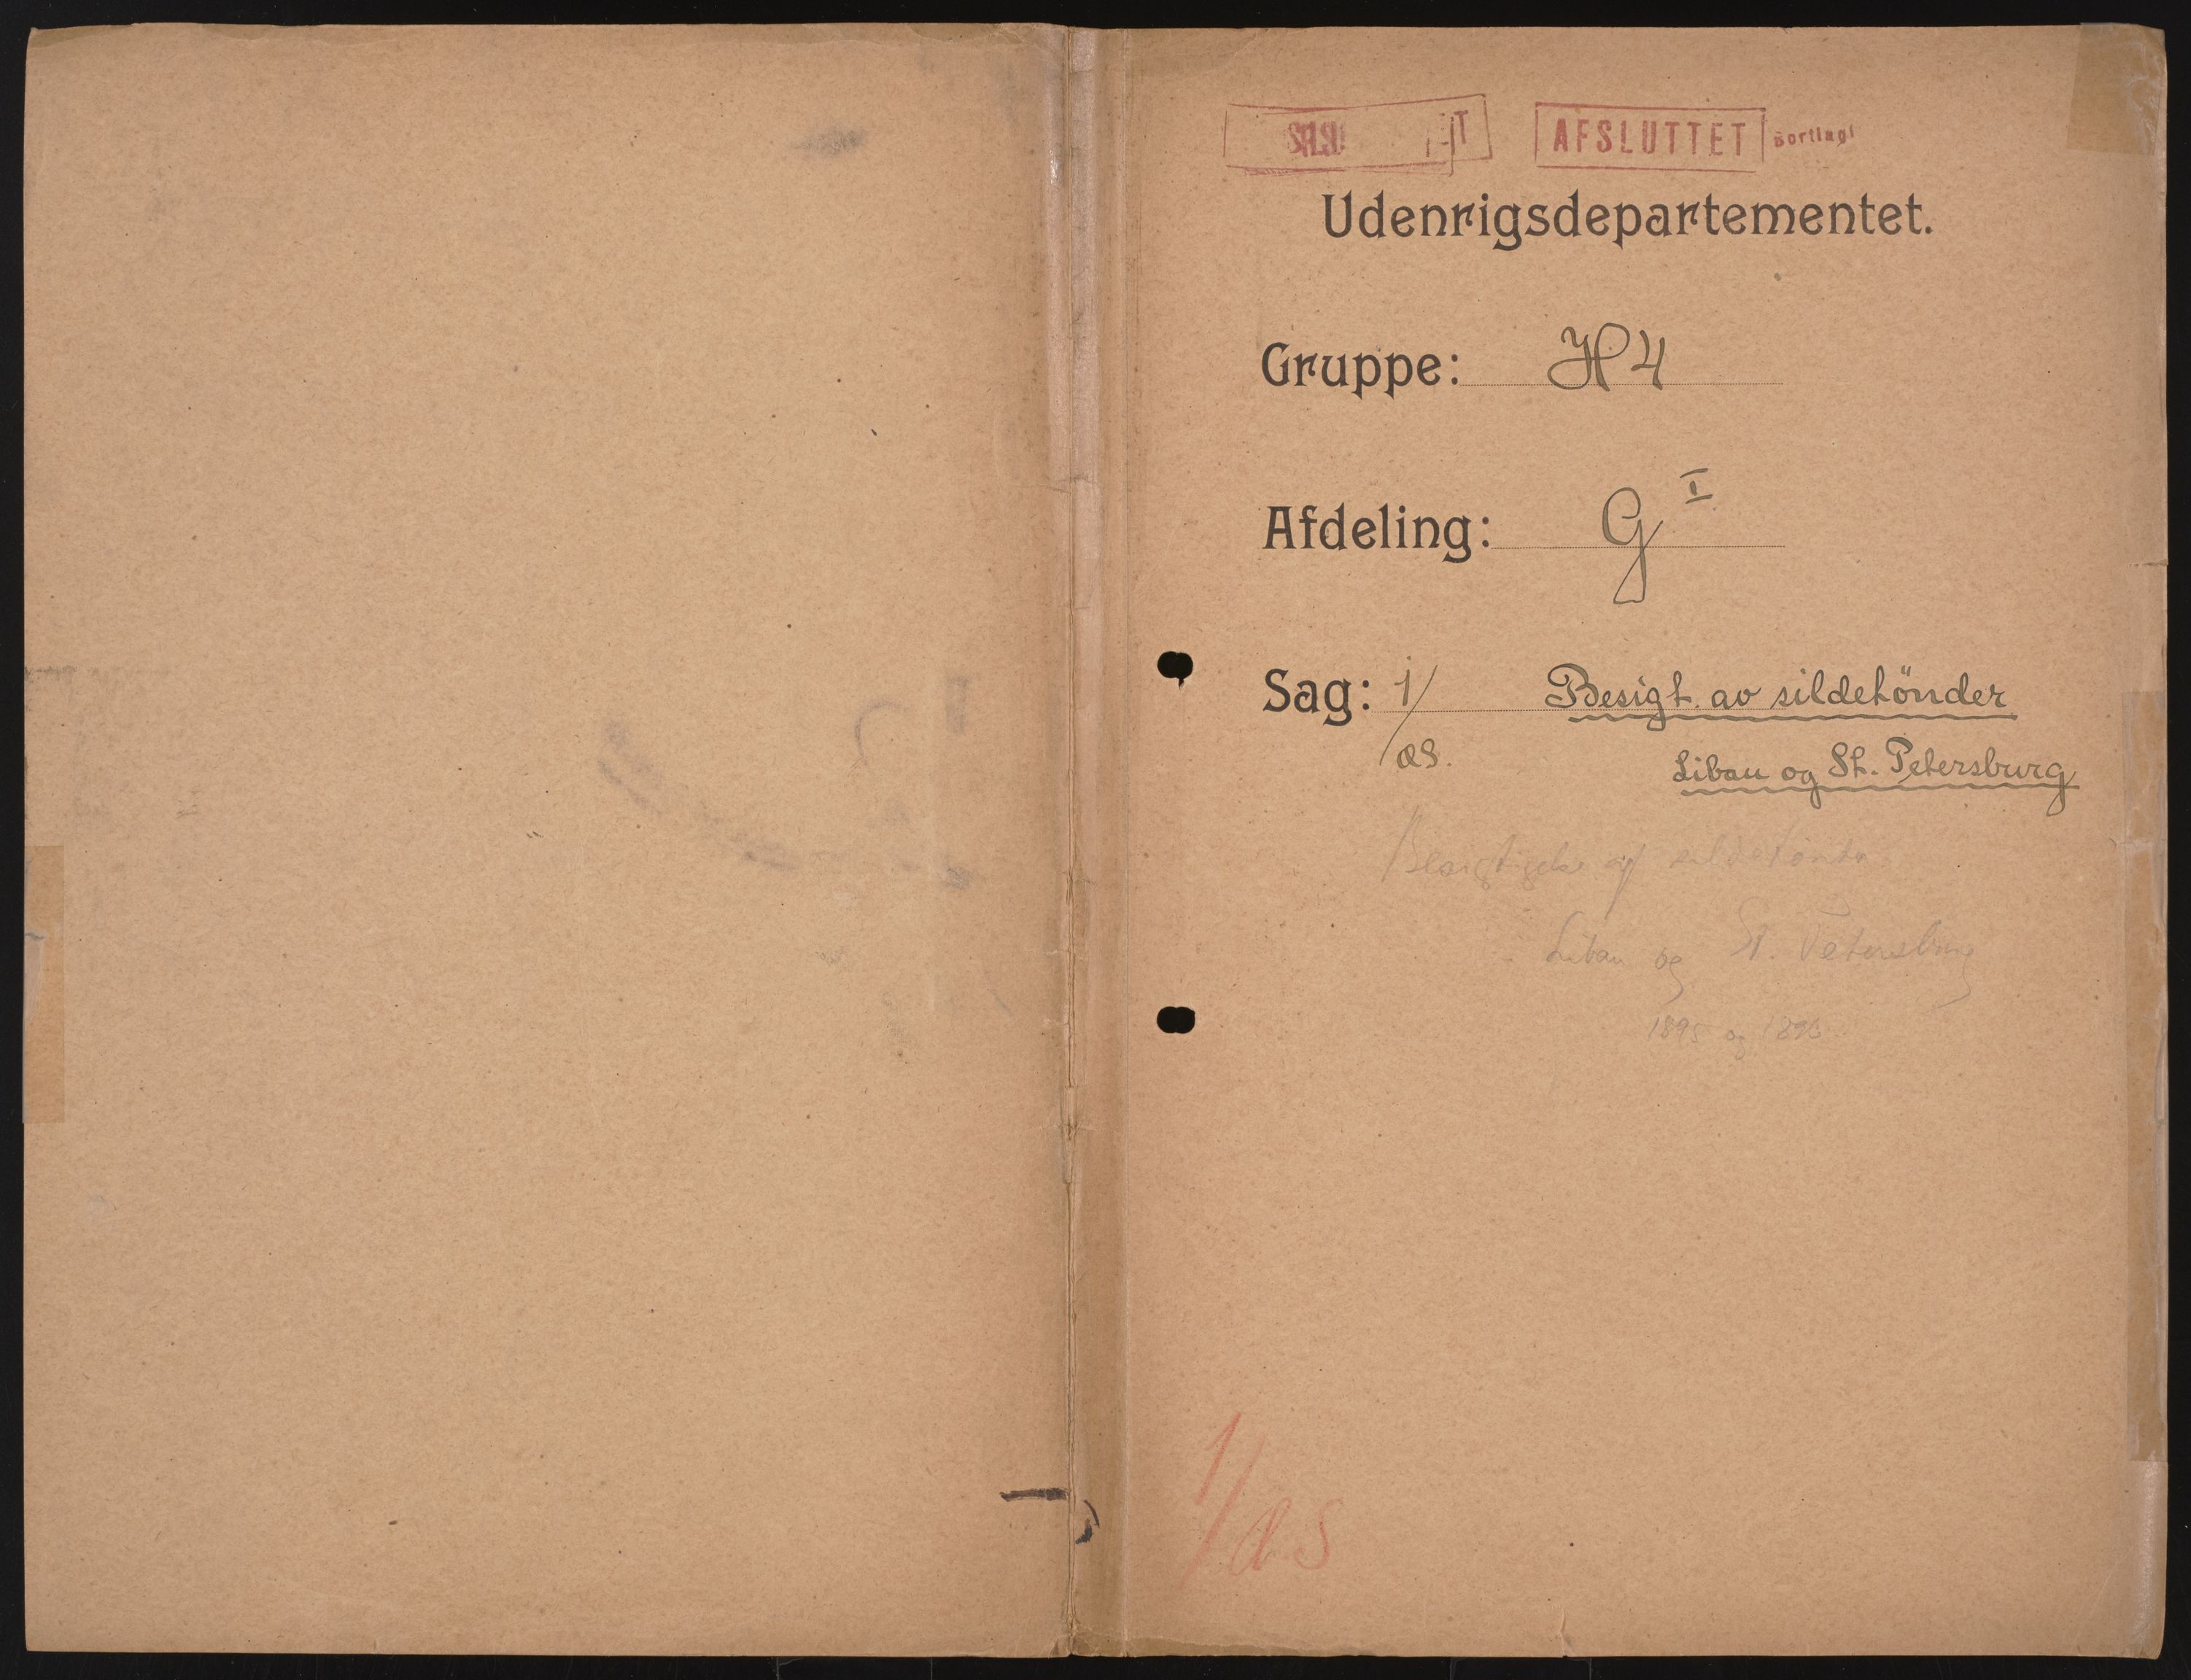 AFSLUTTET Bortlagt
Udenrigsdepartementet.
Gruppe: H 4
Afdeling: G I
Sag: 1/ Besigt. av sildetönder
Libau og St. Petersburg
Besigtigelse af sildetönder
Libau og St. Petersburg
1895 og
1/